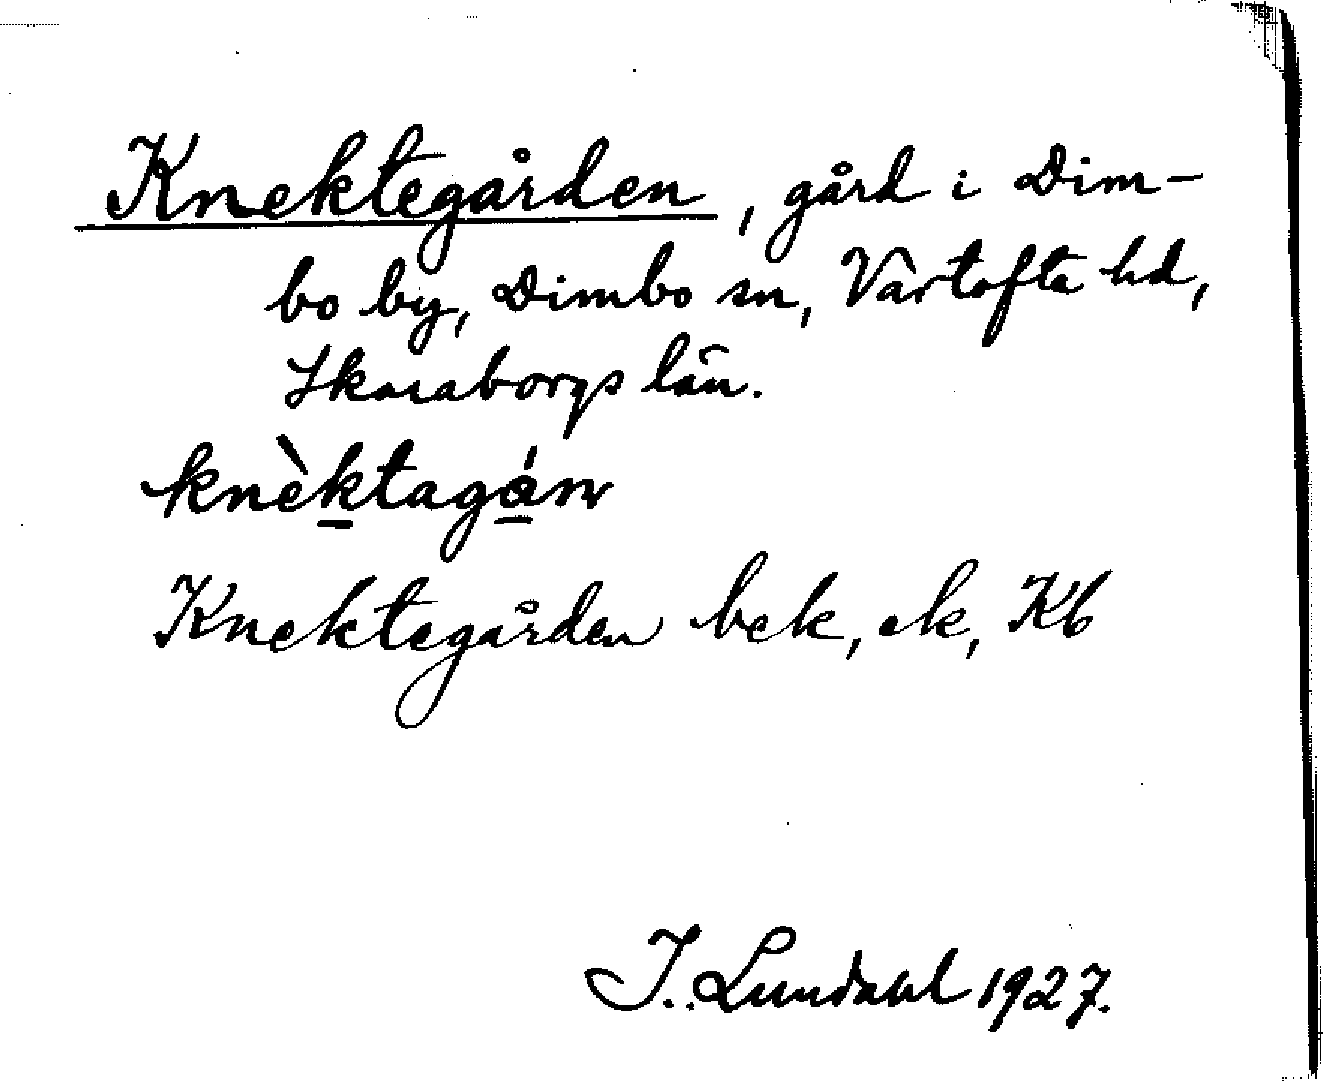 Knektegården, gård i Dim-
bo by, Dimbo sn, Vartofta hd,
Skaraborgs län.
knèktagán
Knektegården bek, ek, Kb
I. Lundahl 1927.